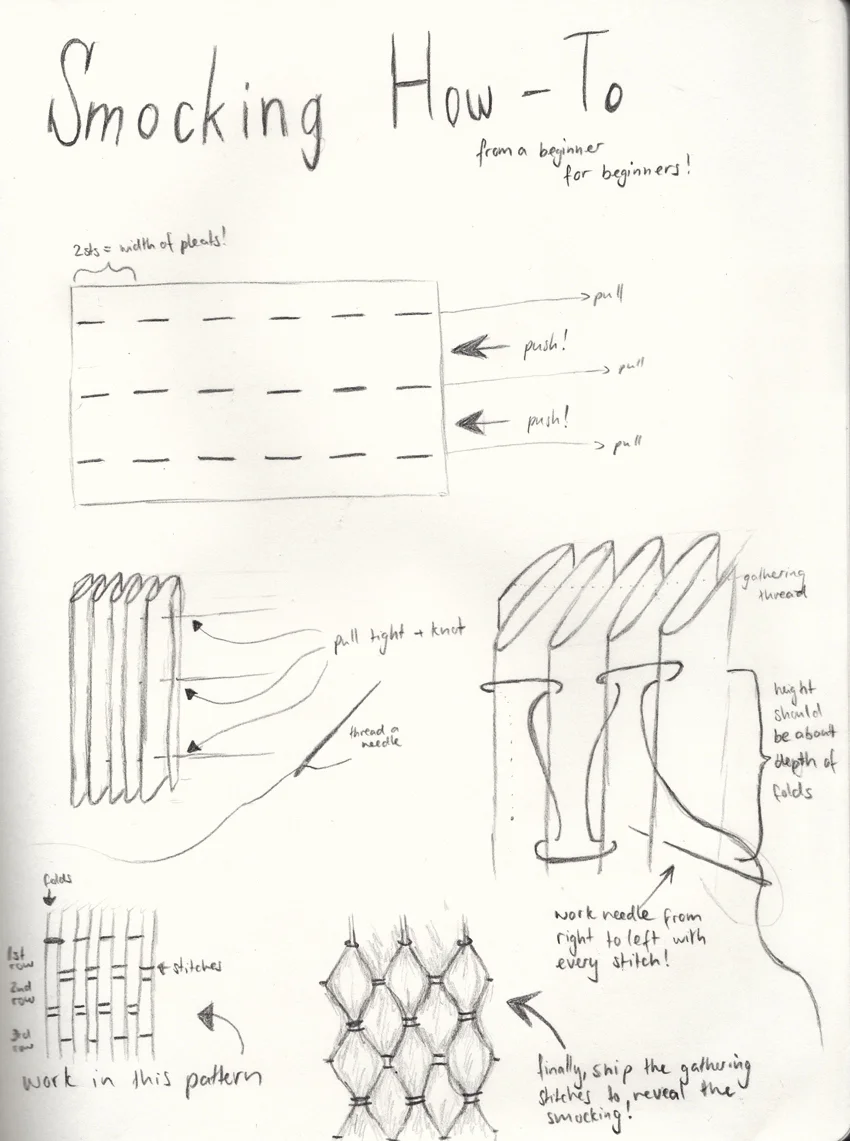 Smocking How-To
from a beginner
for beginners!
2sts = width of pleats!
pull
push!
pull
push!
pull
gathering
thread
pull tight + knot
thread a
needle
height
should
be about
depth of
folds
folds
1st
row
stitches
2nd
row
3rd
row
work in this pattern
work needle from
right to left with
every stitch!
finally, snip the gathering
stitches to reveal the
smocking!